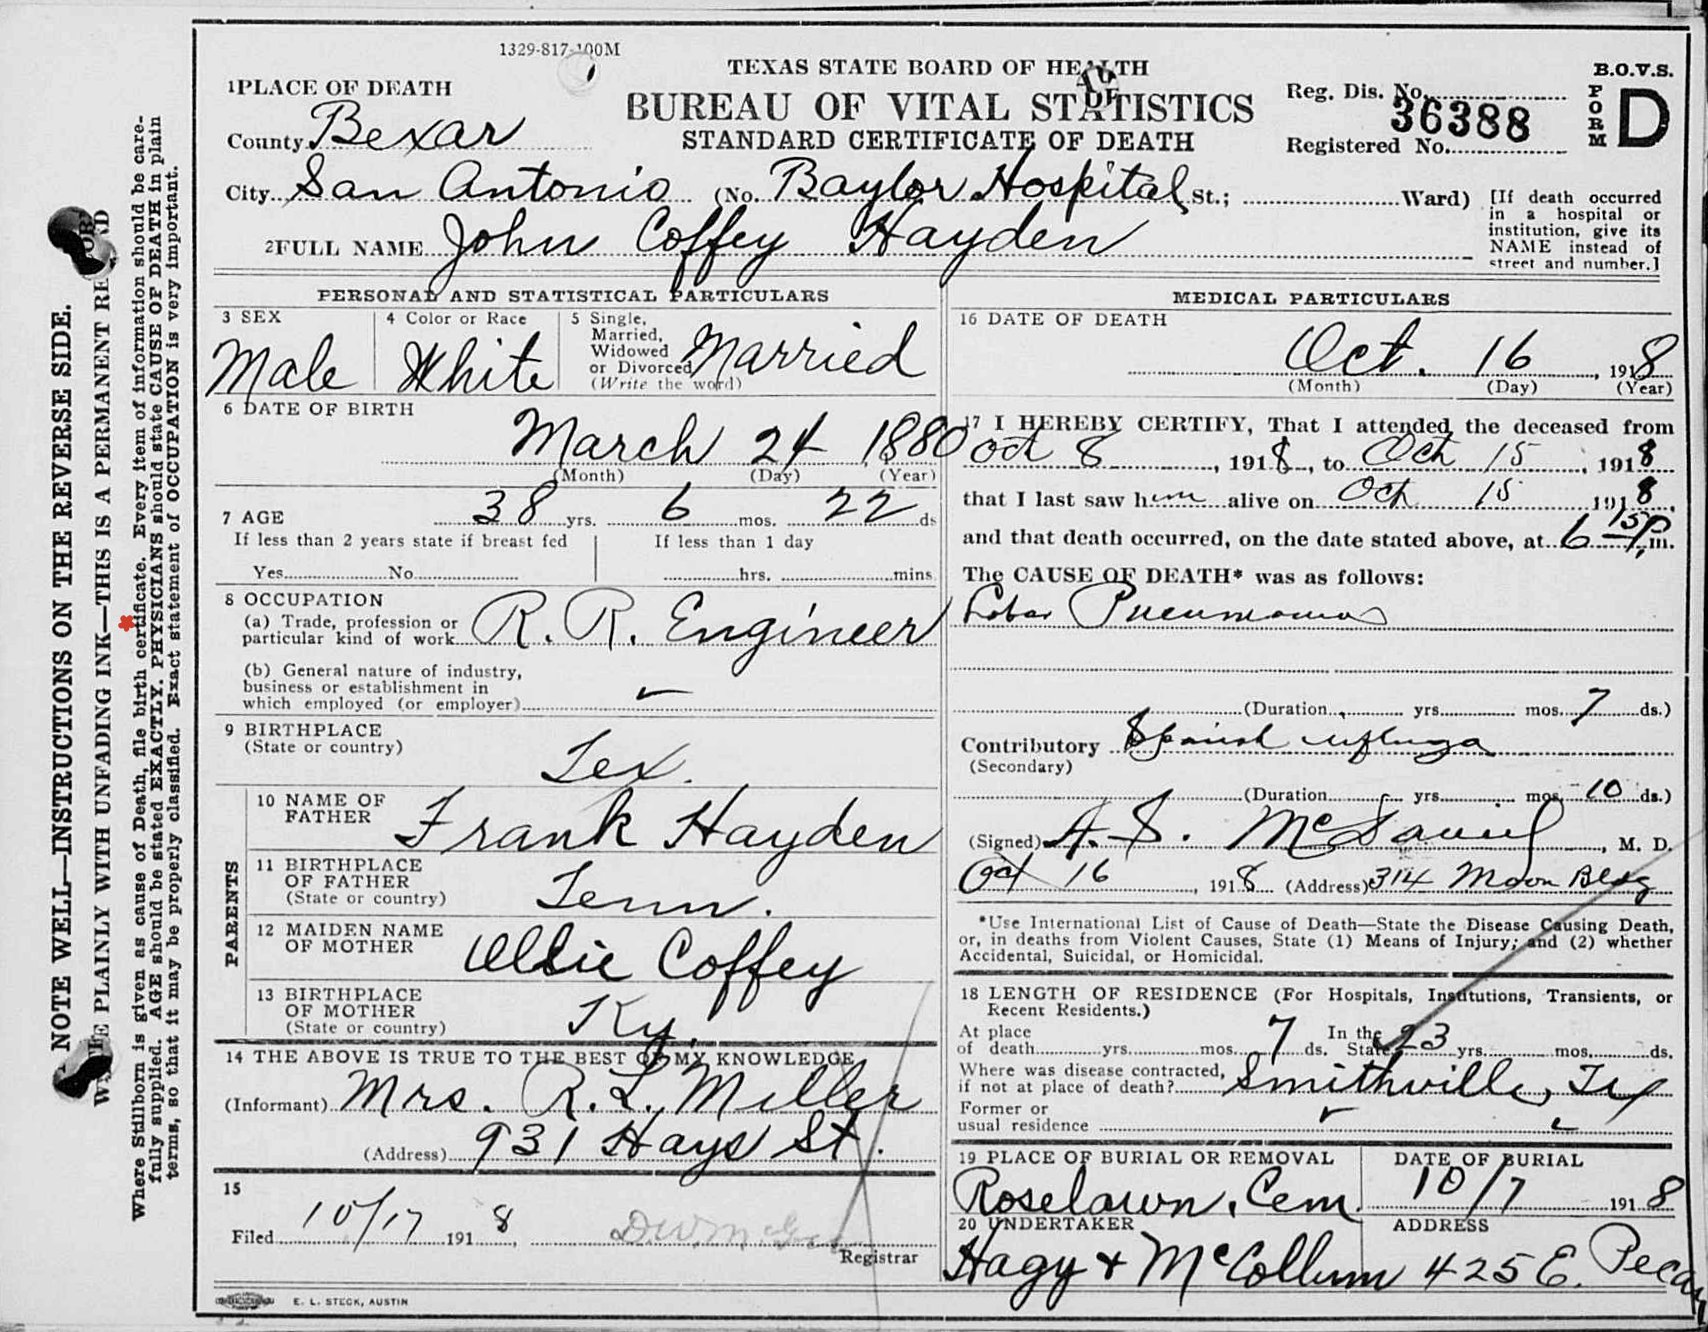 1329-817-100M
TEXAS STATE BOARD OF HEALTH
BUREAU OF VITAL STATISTICS
STANDARD CERTIFICATE OF DEATH
B.O.V.S.
FORM D
Reg. Dis. No.
36388
Registered No.
1 PLACE OF DEATH
County Bexar
City San Antonio (No. Baylor Hospital St.; Ward)
[If death occurred
in a hospital or
institution, give its
NAME instead of
street and number.]
2 FULL NAME John Coffey Hayden
PERSONAL AND STATISTICAL PARTICULARS
3 SEX
Male
4 Color or Race
White
5 Single,
Married,
Widowed
or Divorced
(Write the word)
Married
6 DATE OF BIRTH
March 24 1880
(Month) (Day) (Year)
7 AGE 38 yrs. 6 mos. 22 ds
If less than 2 years state if breast fed
Yes No
If less than 1 day
hrs. mins
8 OCCUPATION
(a) Trade, profession or
particular kind of work R. R. Engineer
(b) General nature of industry,
business or establishment in
which employed (or employer)
9 BIRTHPLACE
(State or country)
Tex.
PARENTS
10 NAME OF
FATHER
Frank Hayden
11 BIRTHPLACE
OF FATHER
(State or country)
Tenn.
12 MAIDEN NAME
OF MOTHER
Coffey
13 BIRTHPLACE
OF MOTHER
(State or country)
Ky.
14 THE ABOVE IS TRUE TO THE BEST OF MY KNOWLEDGE
(Informant) Mrs. R. L. Miller
(Address) 931 Hays St.
15
Filed 10/17 1918
Registrar
MEDICAL PARTICULARS
16 DATE OF DEATH
Oct. 16, 1918
(Month) (Day) (Year)
17 I HEREBY CERTIFY, That I attended the deceased from
Oct 8, 1918, to Oct 15, 1918
that I last saw him alive on Oct 15 1918,
and that death occurred, on the date stated above, at 6 15 P. m.
The CAUSE OF DEATH* was as follows:
Lobar Pneumonia
(Duration yrs. mos. 7 ds.)
Contributory Spanish influenza
(Secondary)
(Duration yrs. mos. 10 ds.)
(Signed) A. S. McDaniel, M. D.
Oct 16, 1918 (Address) 314 Moon Bldg
*Use International List of Cause of Death—State the Disease Causing Death,
or, in deaths from Violent Causes, State (1) Means of Injury; and (2) whether
Accidental, Suicidal, or Homicidal.
18 LENGTH OF RESIDENCE (For Hospitals, Institutions, Transients, or
Recent Residents.)
At place
of death yrs. mos. 7 ds. In the State 23 yrs. mos. ds.
Where was disease contracted,
if not at place of death? Smithville, Tex
Former or
usual residence
19 PLACE OF BURIAL OR REMOVAL
Roselawn Cem.
DATE OF BURIAL
10/7 1918
20 UNDERTAKER
Hagy & McCollum
ADDRESS
425 E. Pecan
E. L. STECK, AUSTIN
NOTE WELL—INSTRUCTIONS ON THE REVERSE SIDE.
PLAINLY WITH UNFADING INK—THIS IS A PERMANENT
Where Stillborn is given as cause of Death, file birth certificate. Every item of information should be care-
fully supplied. AGE should be stated EXACTLY. PHYSICIANS should state CAUSE OF DEATH in plain
terms, so that it may be properly classified. Exact statement of OCCUPATION is very important.